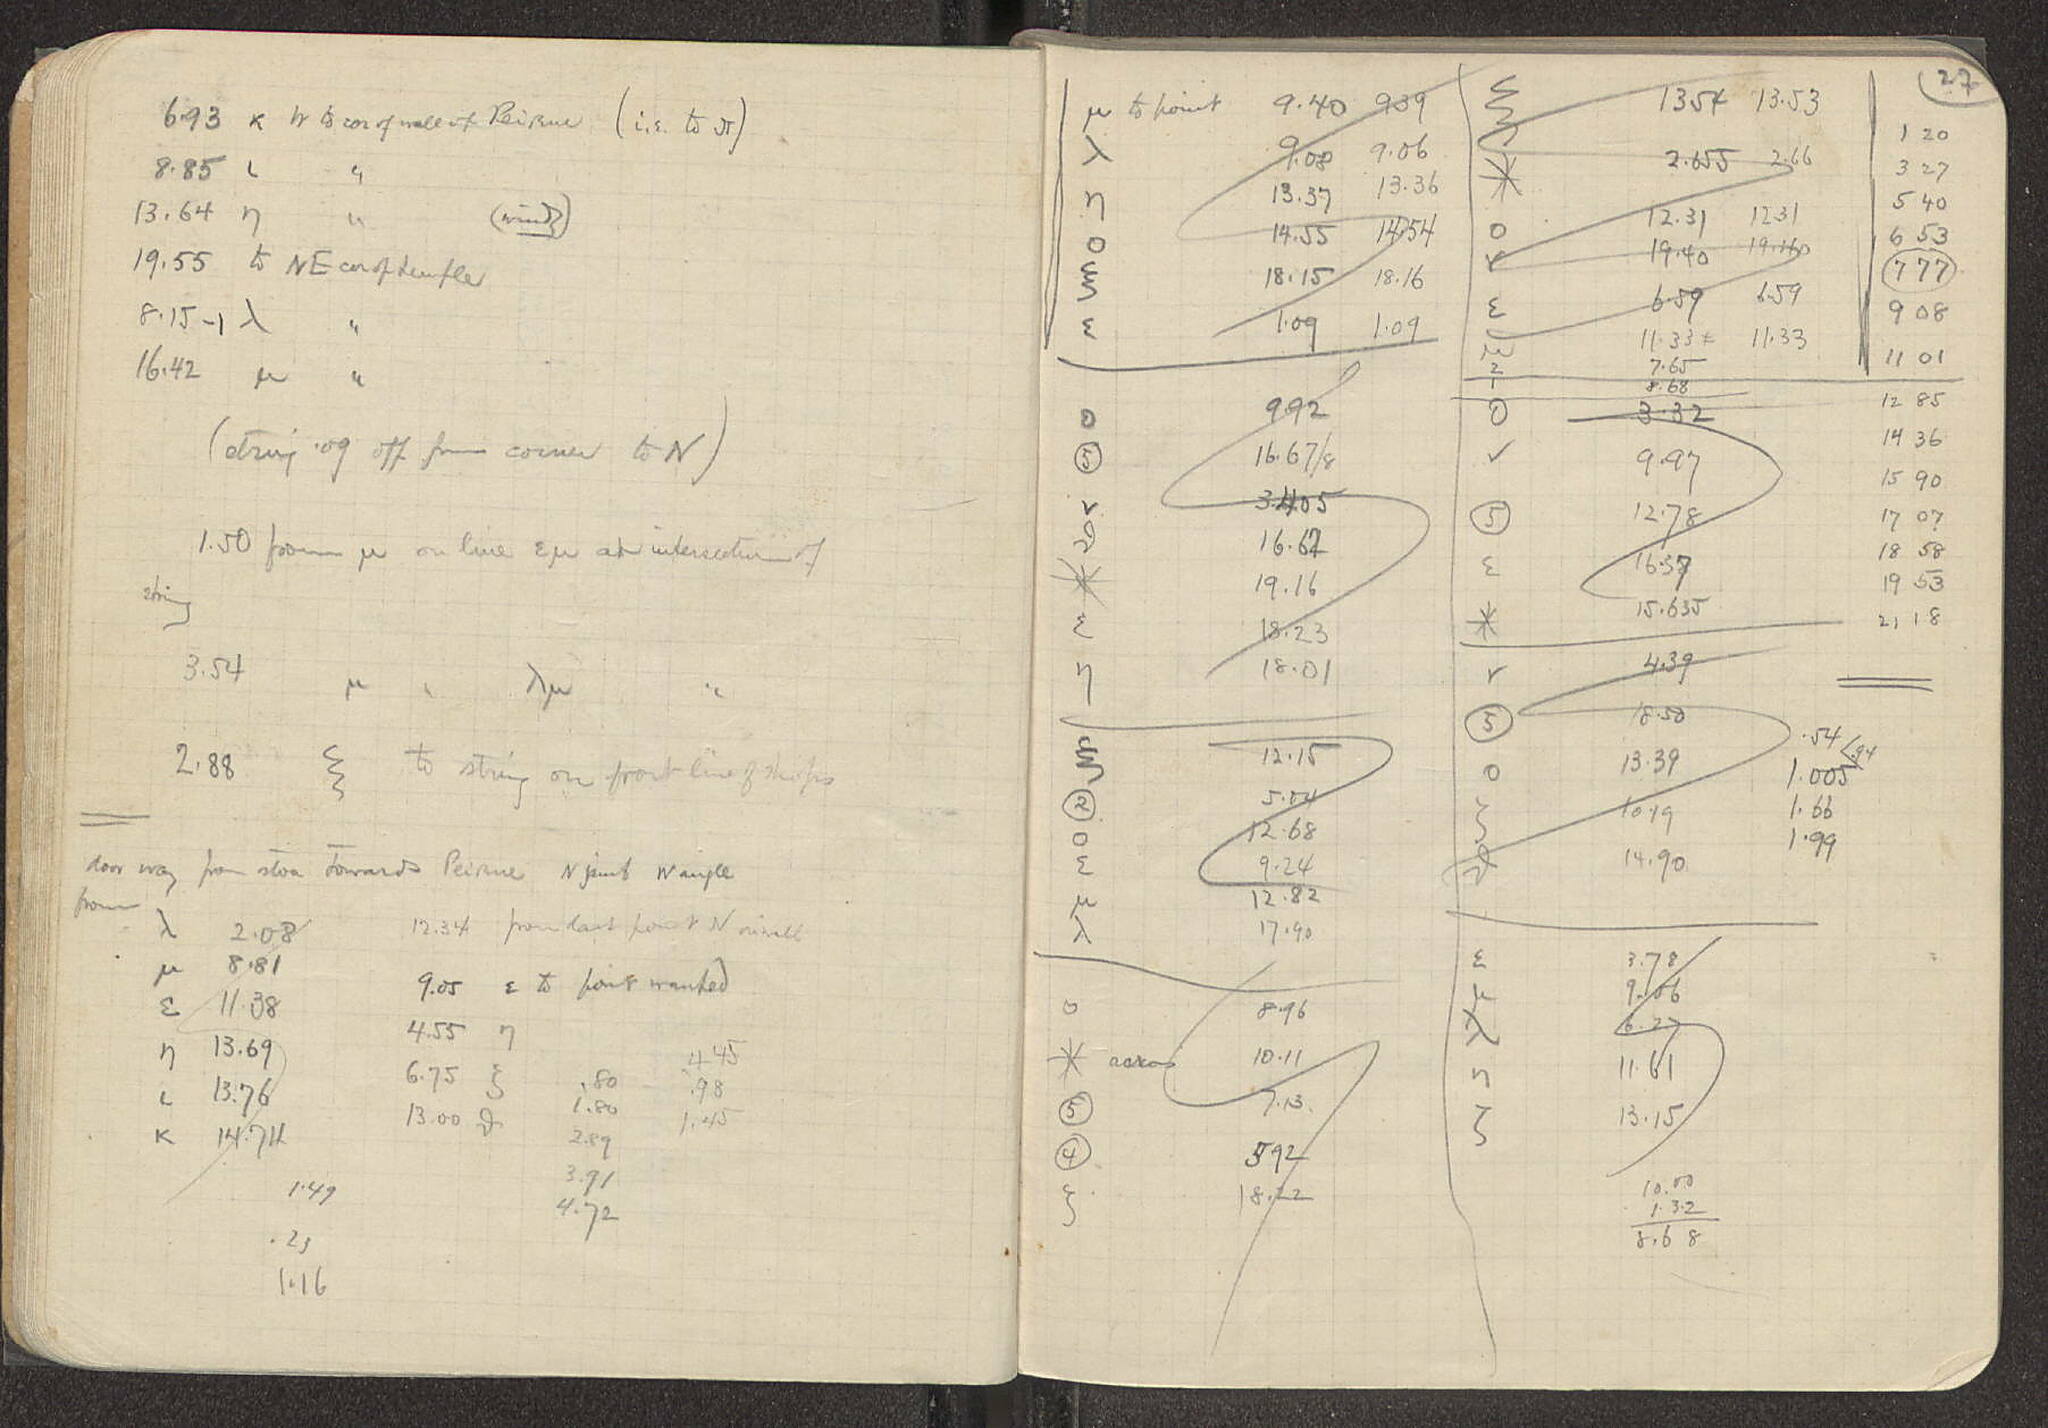 6.93 κ W to cor of wall of Peirene (i.e. to π)
8.85 ι "
13.64 η " (wind)
19.55 to NE cor of temple
8.15-1 λ "
16.42 μ "
(string .09 off from corner to N)
1.50 from μ on line εμ at intersection of
string
3.54 μ " λμ "
2.88 ξ to string on front line of shops
door way from stoa towards Peirene N joint W angle
from
λ 2.08 12.34 from last point N
μ 8.81
ε 11.38 9.05 ε to point wanted
η 13.69 4.55 η
ι 13.76 6.75 ξ .80 4.45
κ 14.74 13.00 ϑ 1.80 .98
2.89 1.45
3.91
4.72
1.49
.23
1.16
27
μ to point 9.40 9.39
λ 9.08 9.06
η 13.37 13.36
ο 14.55 14.54
ξ 18.15 18.16
ε 1.09 1.09
ο 9.92
⑤ 16.67/8
ν 3.405
ϑ 16.67
✳ 19.16
ε 18.23
η 18.01
ξ 12.15
② 5.04
ο 12.68
ε 9.24
μ 12.82
λ 17.90
ο 8.96
✳ across 10.11
⑤ 7.13
④ 5.92
ξ 18.22
ξ 13.54 13.53
✳ 2.655 2.66
ο 12.31 12.31
ν 19.40 19.40
ε 6.59 6.59
μ 11.33 11.33
2 7.65
1 8.68
ο 3.32
ν 9.97
⑤ 12.78
ε 16.37
✳ 15.635
ν 4.39
⑤ 18.50
ο 13.39
ζ 10.19
ϑ 14.90
ε 3.78
μ 9.06
λ 6.27
η 11.61
ζ 13.15
10.00
1.32
8.68
1 20
3 27
5 40
6 53
7 77
9 08
11 01
12 85
14 36
15 90
17 07
18 58
19 53
21 18
.54
.94
1.005
1.66
1.99